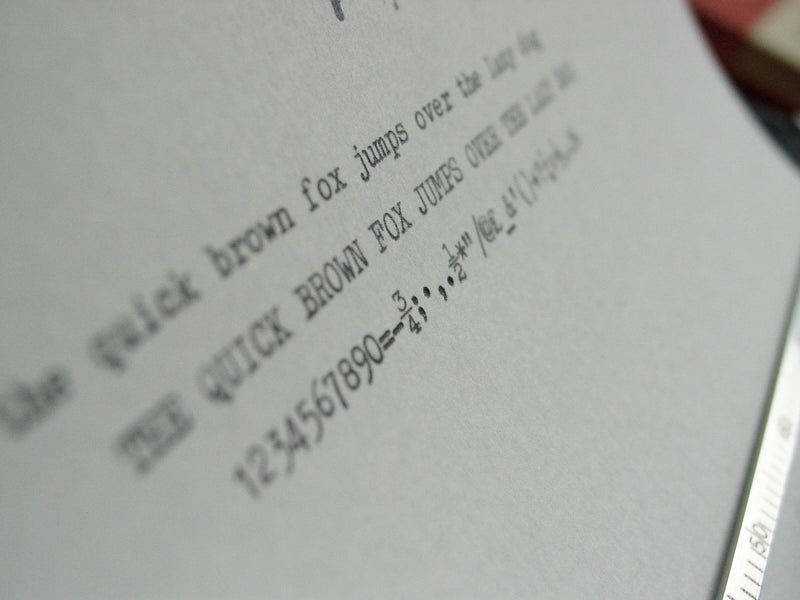 the quick brown fox jumps over the lazy dog
THE QUICK BROWN FOX JUMPS OVER THE LAZY DOG
1234567890=-¾;:,.½*"/@£_&'()
50
60